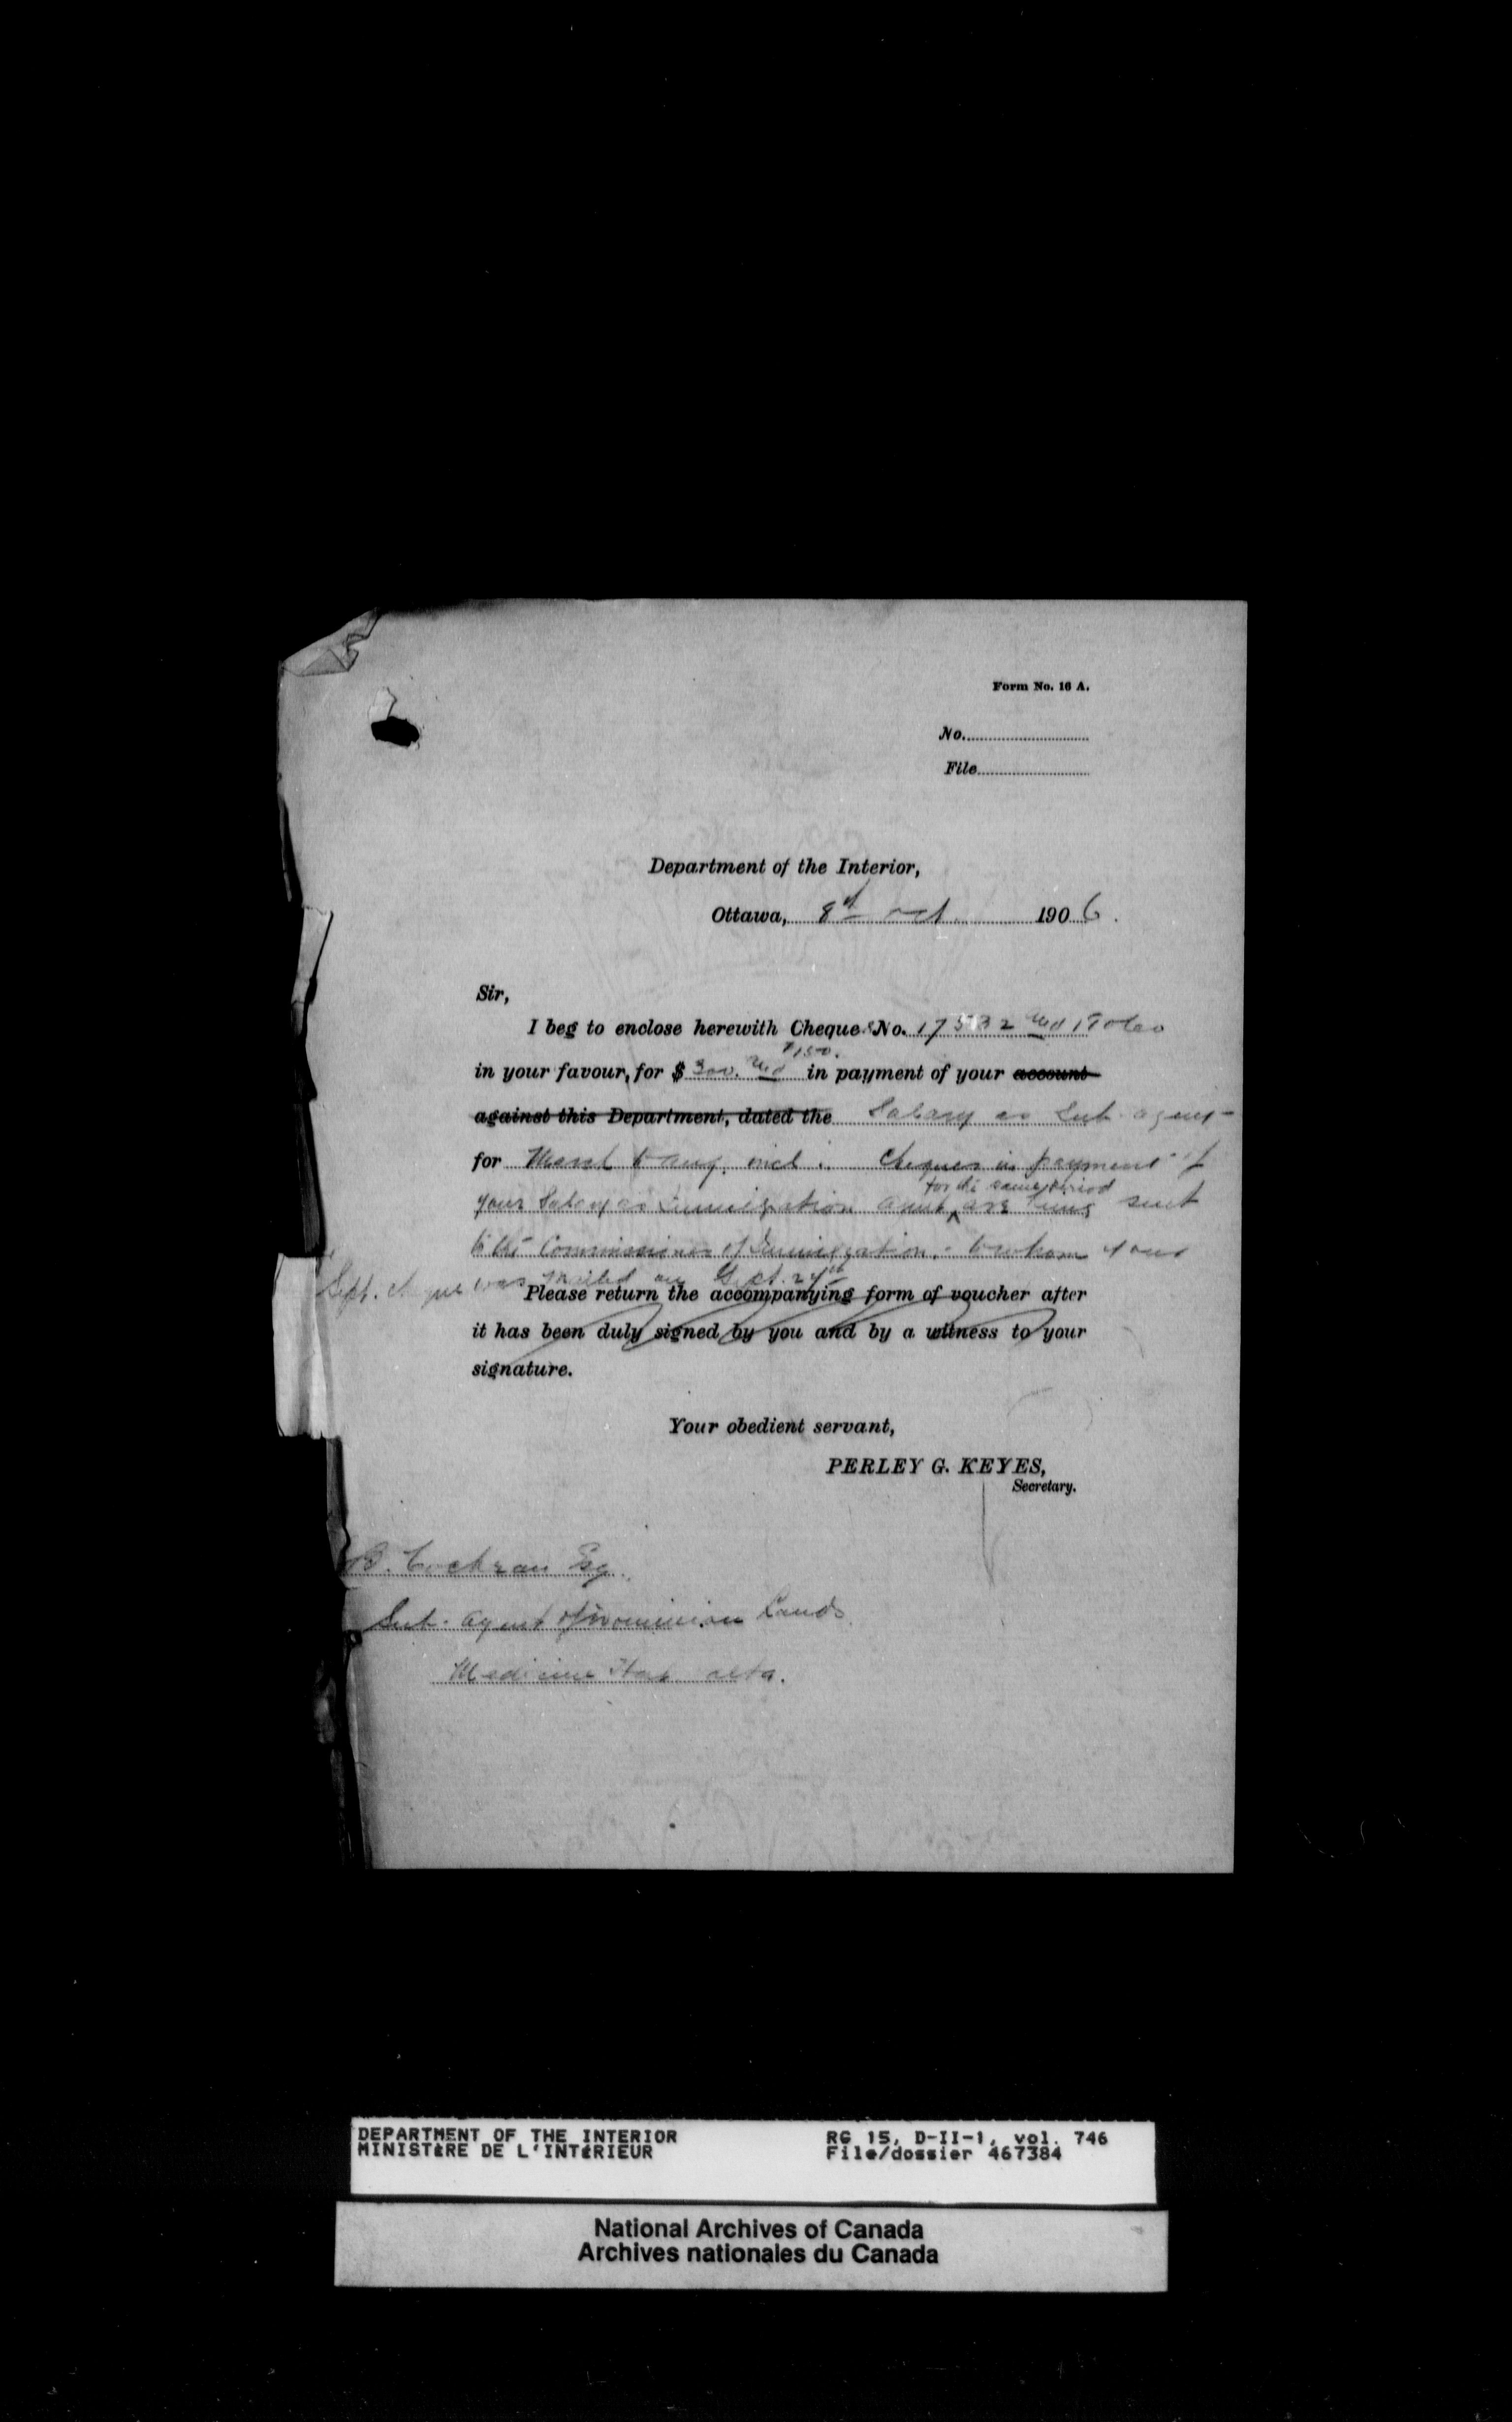 Form No. 16 A.
No.
File
Department of the Interior,
Ottawa, 8th Oct. 1906.
Sir,
I beg to enclose herewith Cheques No. 17532 and
in your favour, for $ 300. and $150. in payment of your account
against this Department, dated the Salary as Sub-agent
for March to Aug. incl. Cheques in payment of
your Salary as Immigration agent for the same period are being sent
to the Commissioner of Immigration, - to whom your
Sept. cheque was mailed on Sept.
Please return the accompanying form of voucher after
it has been duly signed by you and by a witness to your
signature.
Your obedient servant,
PERLEY G. KEYES,
Secretary.
Cochran Esq.
Sub. Agent of Dominion Lands
Medicine Hat Alta.
DEPARTMENT OF THE INTERIOR
MINISTÈRE DE L'INTÉRIEUR
RG 15, D-II-1, vol. 746
File/dossier 467384
National Archives of Canada
Archives nationales du Canada